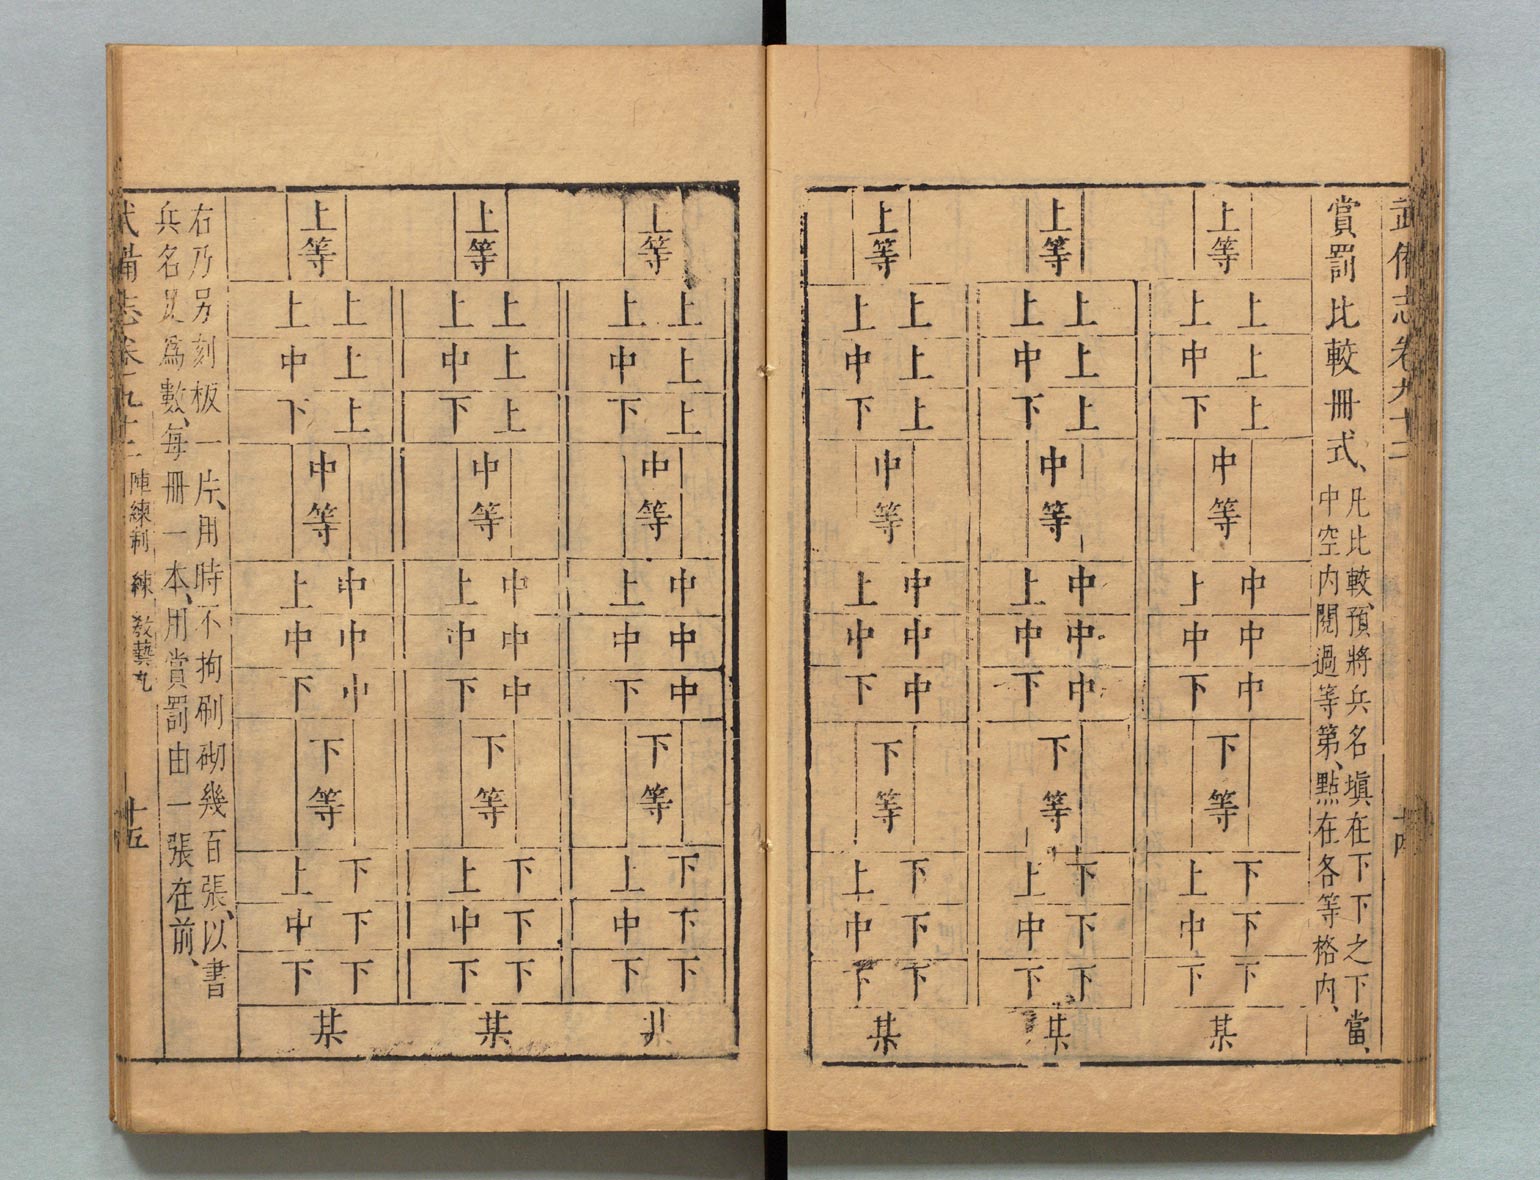 武備志卷九十二
十四
賞罰比較冊式、
凡比較、預將兵名填在下下之下當、
中空内閱過等第、點在各等格内、
上等
上上
上中
上下
中等
中上
中中
中下
下等
下上
下中
下下
某
上等
上上
上中
上下
中等
中上
中中
中下
下等
下上
下中
下下
某
上等
上上
上中
上下
中等
中上
中中
中下
下等
下上
下中
下下
某
上等
上上
上中
上下
中等
中上
中中
中下
下等
下上
下中
下下
上等
上上
上中
上下
中等
中上
中中
中下
下等
下上
下中
下下
某
上等
上上
上中
上下
中等
中上
中中
中下
下等
下上
下中
下下
某
右乃另刻板一片、用時不拘刷砌幾百張、以書
兵名足爲數、每冊一本、用賞罰由一張在前、
武備志卷九十二 陣練制 練 教藝九
十五